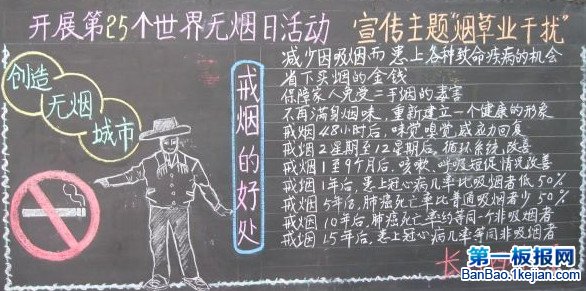 开展第25个世界无烟日活动 宣传主题"烟草业干扰"
创造
无烟
城市
戒烟的好处
减少因吸烟而患上各种致命疾病的机会
省下买烟的金钱
保障家人免受二手烟的毒害
不再满身烟味，重新建立一个健康的形象
戒烟48小时后，味觉嗅觉感应力回复
戒烟2星期至12星期后，循环系统改善
戒烟1至9个月后，咳嗽、呼吸短促情况改善
戒烟1年后，患上冠心病几率比吸烟者低50%
戒烟5年后，肺癌死亡率比普通吸烟者少50%
戒烟10年后，肺癌死亡率约等同一个非吸烟者
戒烟15年后，患上冠心病几率等同非吸烟者
第一板报网
BanBao.1kejian.com